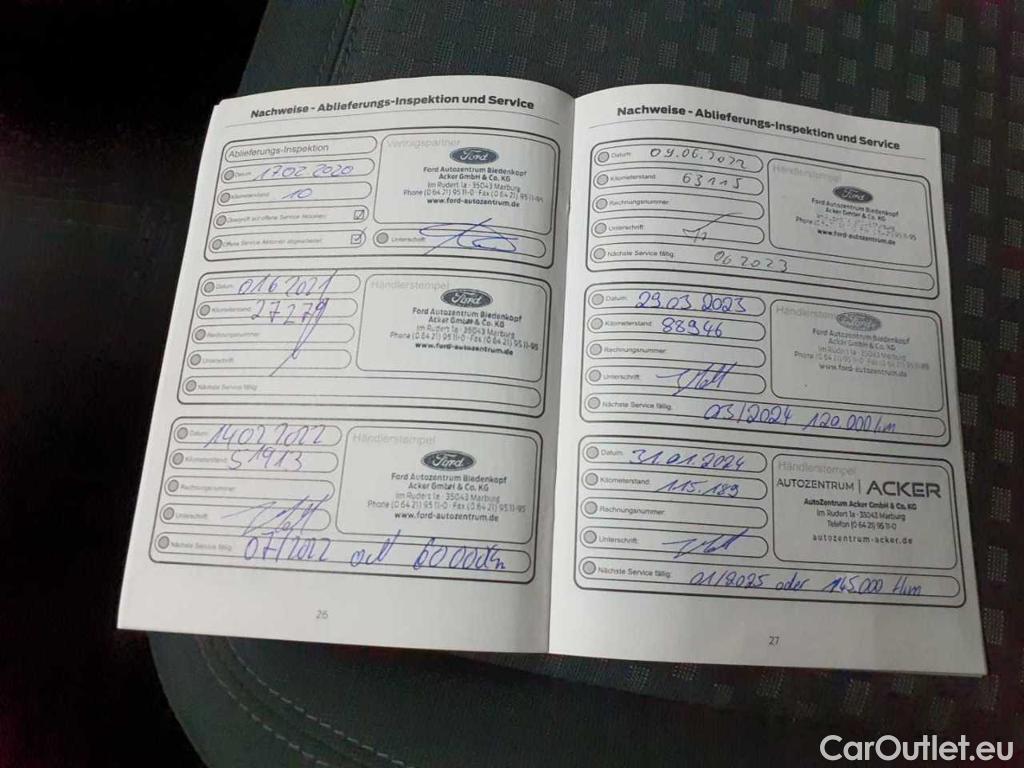 Nachweise - Ablieferungs-Inspektion und Service
Ablieferungs-Inspektion
Datum: 17.02.2020
Kilometerstand: 10
Überprüft auf offene Service Aktionen:
Offene Service Aktionen abgearbeitet:
Vertragspartner
Ford
Ford Autozentrum Biedenkopf
Acker GmbH & Co. KG
Im Rudert 1a · 35043 Marburg
Phone (0 64 21) 95 11-0 · Fax (0 64 21) 95 11-95
www.ford-autozentrum.de
Unterschrift:
Datum: 01 6 2021
Kilometerstand: 27279
Rechnungsnummer:
Unterschrift:
Nächste Service fällig:
Händlerstempel
Ford
Ford Autozentrum Biedenkopf
Acker GmbH & Co. KG
Im Rudert 1a · 35043 Marburg
Phone (0 64 21) 95 11-0 · Fax (0 64 21) 95 11-95
www.ford-autozentrum.de
Datum: 14.02.2022
Kilometerstand: 51913
Rechnungsnummer:
Unterschrift:
Nächste Service fällig: 07/2022 60000
Händlerstempel
Ford
Ford Autozentrum Biedenkopf
Acker GmbH & Co. KG
Im Rudert 1a · 35043 Marburg
Phone (0 64 21) 95 11-0 · Fax (0 64 21) 95 11-95
www.ford-autozentrum.de
26
Nachweise - Ablieferungs-Inspektion und Service
Datum: 09.06.2022
Kilometerstand: 63115
Rechnungsnummer:
Unterschrift:
Nächste Service fällig: 06 2023
Händlerstempel
Ford
Ford Autozentrum Biedenkopf
Acker GmbH & Co. KG
www.ford-autozentrum.de
Datum: 29.03.2023
Kilometerstand: 88946
Rechnungsnummer:
Unterschrift:
Nächste Service fällig: 03/2024 120.000 km
Händlerstempel
Ford
Ford Autozentrum Biedenkopf
Acker GmbH & Co. KG
Im Rudert 1a · 35043 Marburg
Phone (0 64 21) 95 11-0 · Fax (0 64 21) 95 11-95
www.ford-autozentrum.de
Datum: 31.01.2024
Kilometerstand: 115.189
Rechnungsnummer:
Unterschrift:
Nächste Service fällig: 01/2025 oder 145.000 km
Händlerstempel
AUTOZENTRUM | ACKER
AutoZentrum Acker GmbH & Co. KG
Im Rudert 1a · 35043 Marburg
Telefon (0 64 21) 95 11-0
autozentrum-acker.de
27
CarOutlet.eu